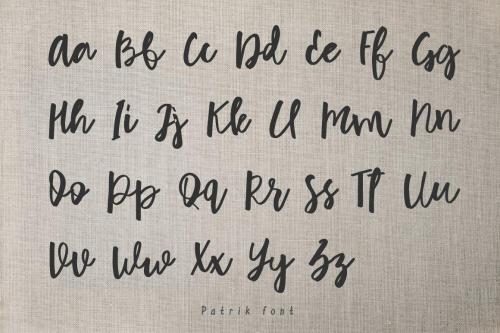 Aa Bb Cc Dd Ee Ff Gg
Hh Ii Jj Kk Ll Mm Nn
Oo Pp Qq Rr Ss Tt Uu
Vv Ww Xx Yy Zz
Patrik font